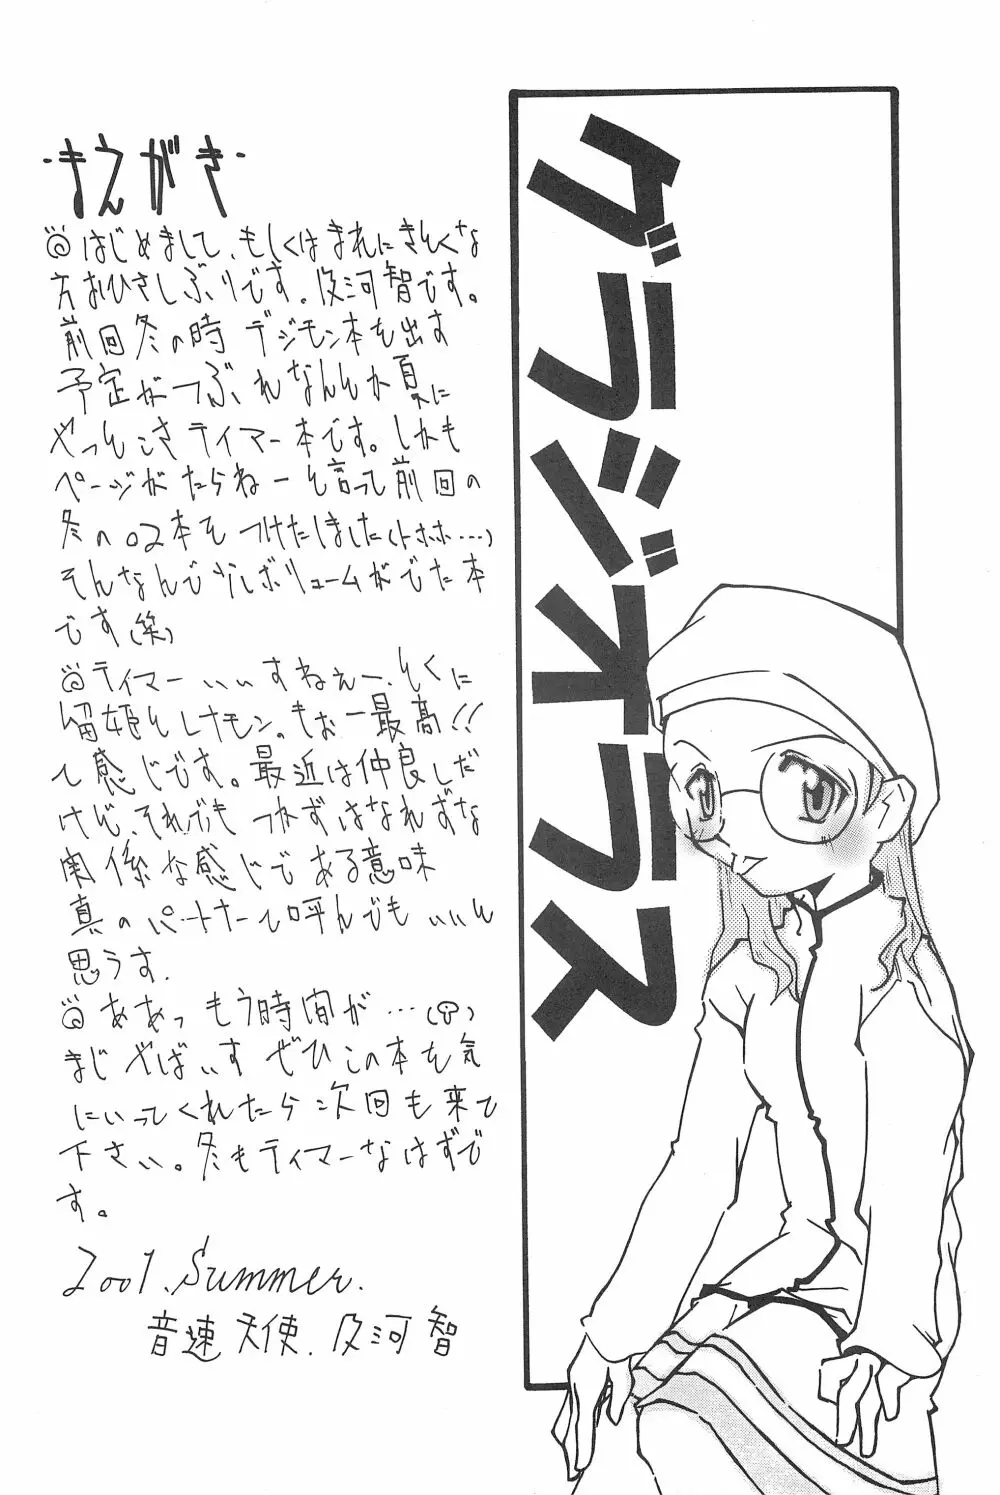 グラジオラス
・まえがき・
◎はじめまして、もしくはまれにきとくな
方おひさしぶりです。及河智です。
前回冬の時デジモン本を出す
予定がつぶれなんとか夏に
やっとこさテイマー本です。しかも
ページがたらねーと言って前回の
冬の02本をつけたしました(トホホ…)
そんなんで少しボリュームがでた本
です(笑)
◎テイマーいいすねぇー、とくに
留姫とレナモン。もぉー最高!!
て感じです。最近は仲良しだ
けど、それでもつかずはなれずな
関係な感じである意味
真のパートナーて呼んでもいいと
思うす。
◎ああっもう時間が…(泣)
まじやばいすぜひこの本を気
にいってくれたら次回も来て
下さい。冬もテイマーなはずで
す。
2001. Summer.
音速天使. 及河智